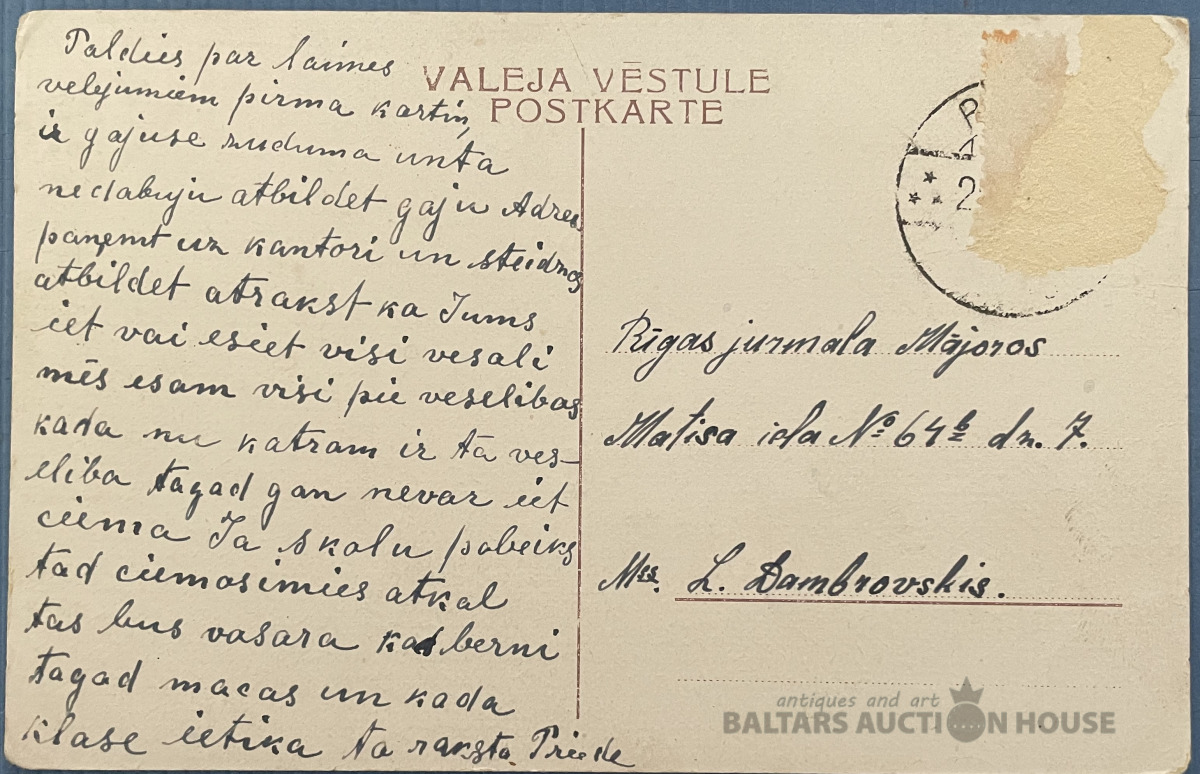 Paldies par laimes
velejumiem pirma kartiņ
ir gajuse zuduma unta
nedabuju atbildet gaju Adres
paņemt uz kantori un steidzos
atbildet atrakst ka Jums
iet vai esiet visi veseli
mēs esam visi pie veselibas
kada nu katram ir ta ves-
eliba tagad gan nevar iet
ciema Ja skolu pabeiks
tad ciemosimies atkal
tas bus vasara kad berni
tagad macas un kada
klase ietika ta raksta Priede
VALEJA VĒSTULE
POSTKARTE
Rīgas jurmala Mājoros
Matisa iela № 64b dz. 7.
L. Dambrovskis.
antiques and art
BALTARS AUCTION HOUSE